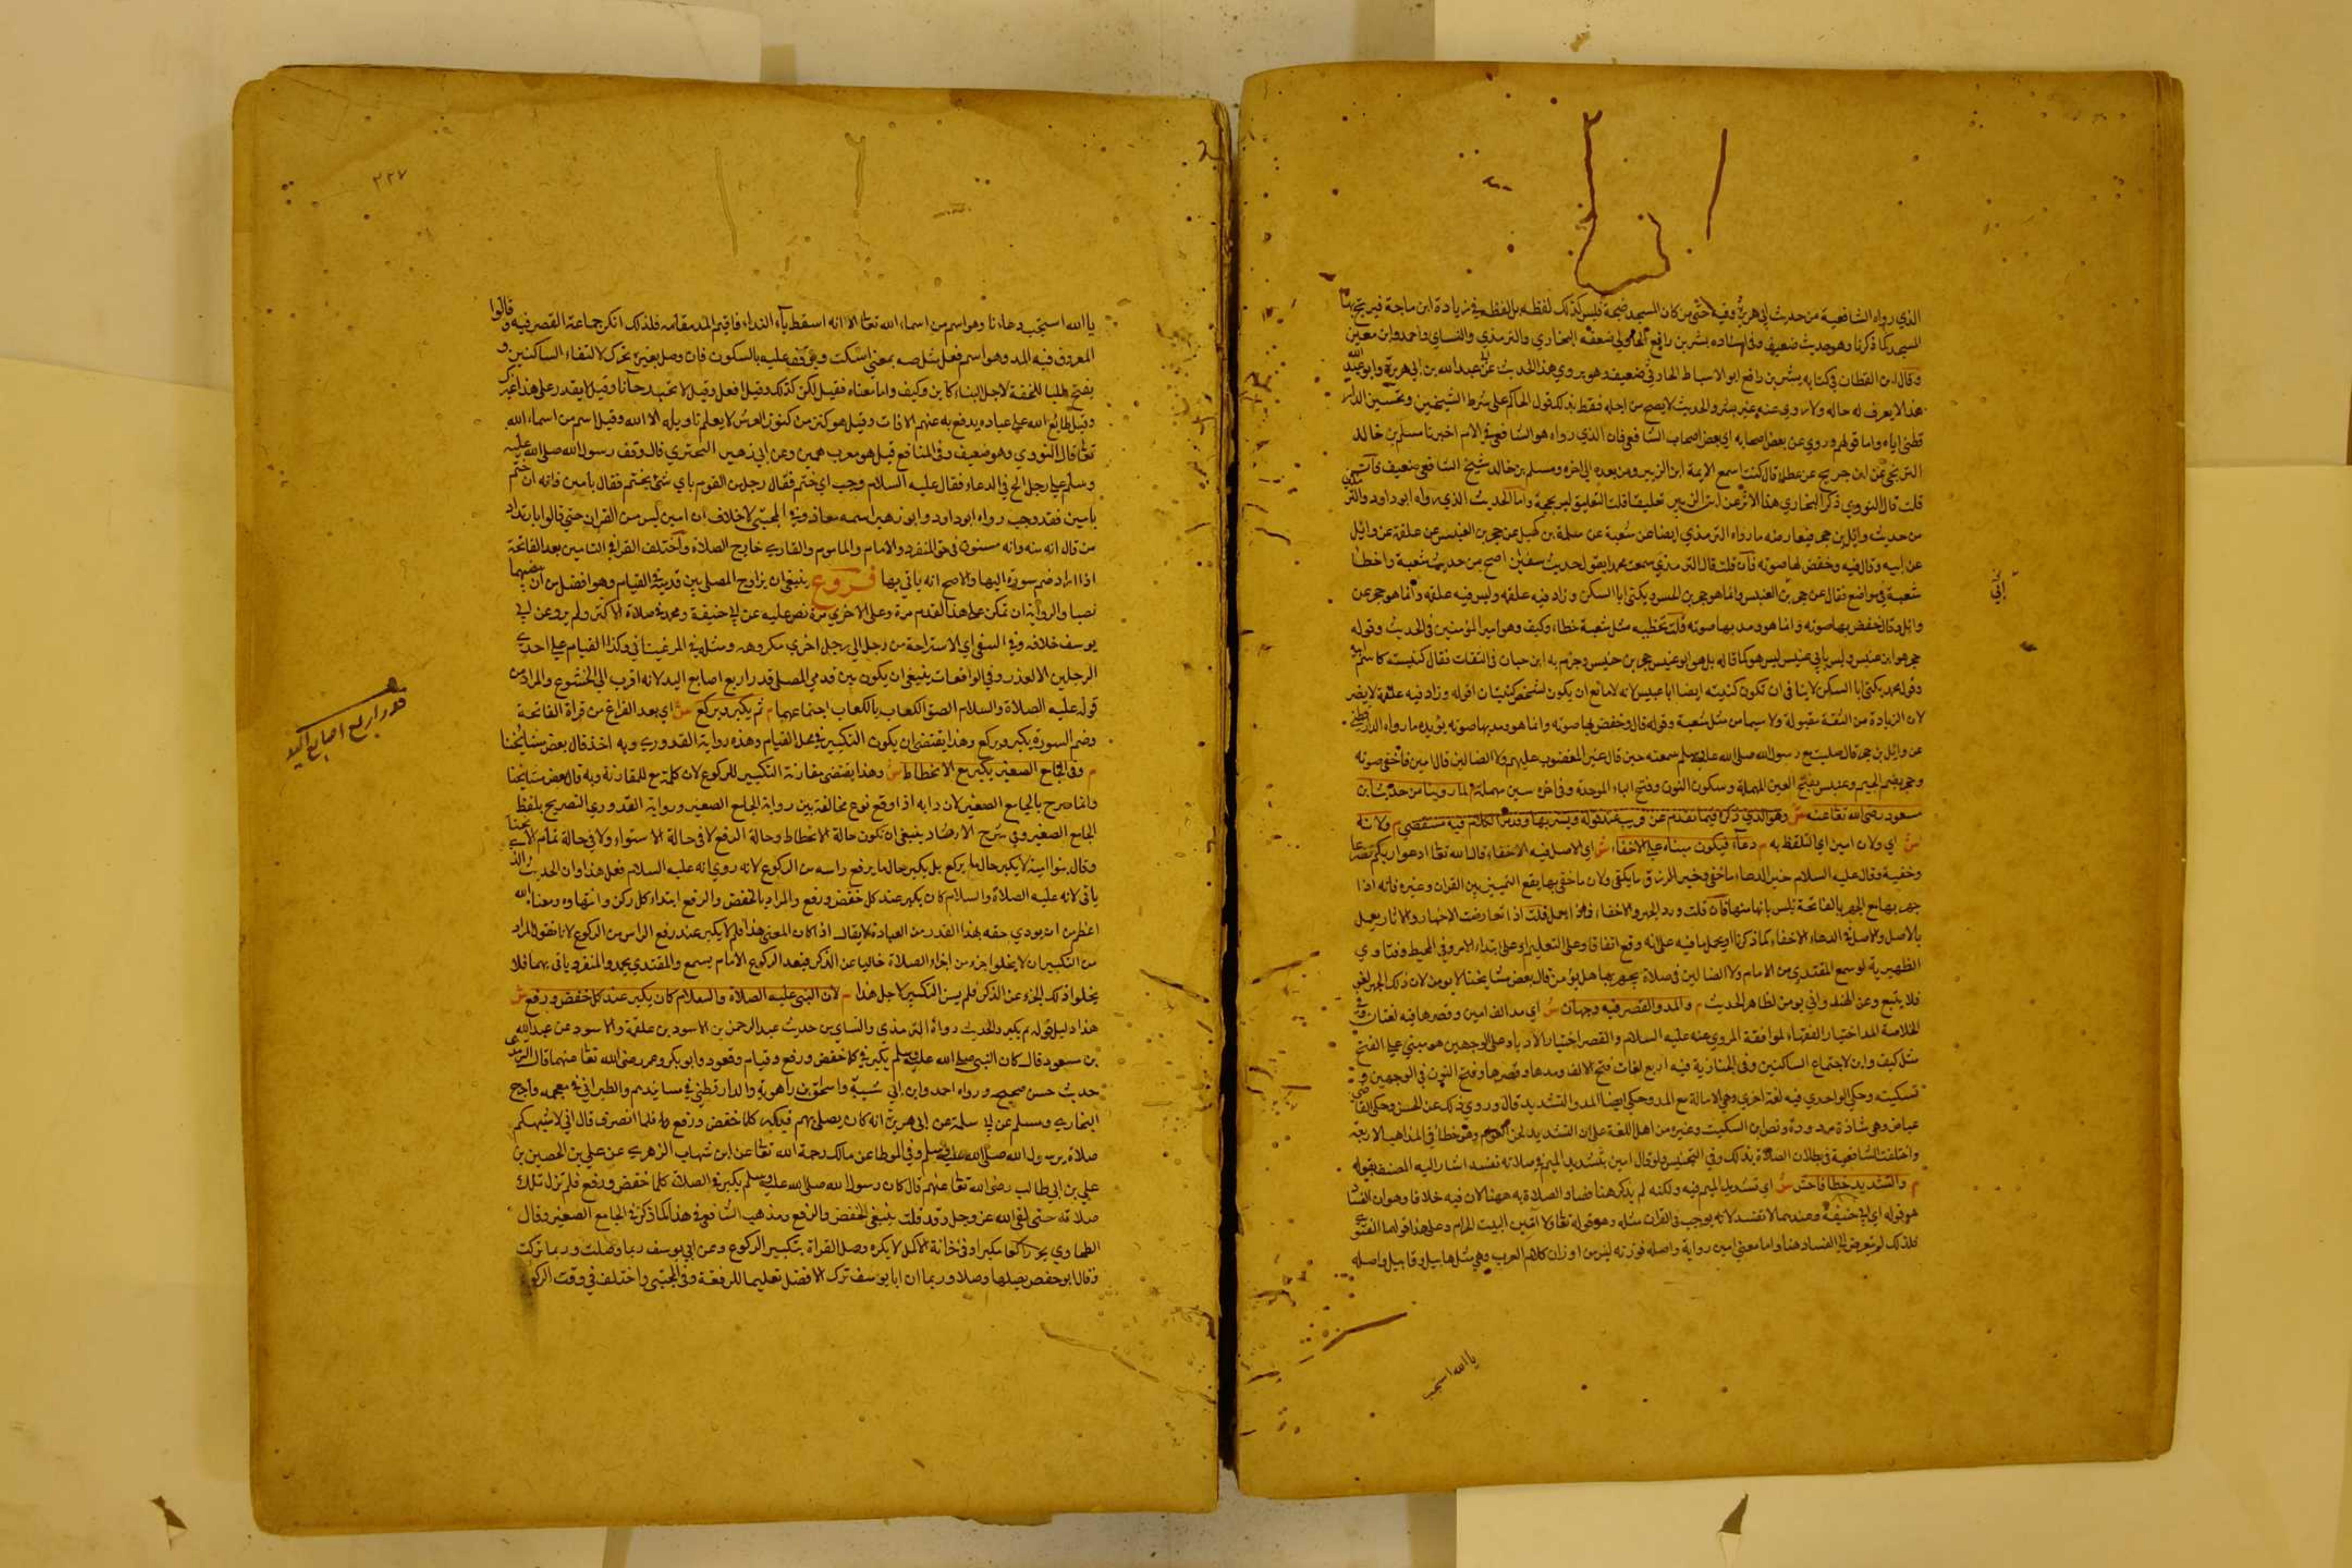 الذي رواه الشافعية من حديث ابي هريرة وفيه حتى من كان المسجد ضجة فليس كذلك لفظه بل لفظه زيادة ابن ماجة فيرتج بها
المسجد كما ذكرنا وهو حديث ضعيف وفي اسناده بشر بن رافع الحارثي ضعفه البخاري والترمذي والنساي واحمد وابن معين
وقال ابن القطان في كتابه بشر بن رافع ابو الاسباط الحارثي ضعيف وهو يروي هذا الحديث عن ابي عبد الله بن عم ابي هريرة وابو عبد الله
هذا لا يعرف له حاله ولا روي عنه غير بشر والحديث لا يصح من اجله فقط بذلك قول الحاكم على شرط الشيخين وتحسين الدار
قطني اياه واما قولهم وروي عن بعض اصحابه اي بعض اصحاب الشافعي فان الذي رواه هو الشافعي في الام اخبرنا مسلم بن خالد
الزنجي عن ابن جريج عن عطاء قال كنت اسمع الايمة ابن الزبير ومن بعده الى اخره ومسلم بن خالد شيخ الشافعي ضعيف فان
قلت قال النووي ذكر البخاري هذا الاثر عن ابن الزبير تعليقا قلت التعليق ليس بحجة واما الحديث الذي رواه ابو داود والترمذي
من حديث وائل بن حجر فيعارضه ما رواه الترمذي ايضا عن شعبة عن سلمة بن كهيل عن حجر بن العنبس عن علقمة عن وائل
عن ابيه وقال فيه وخفض بها صوته فان قلت قال الترمذي سمعت محمدا يقول حديث سفين اصح من حديث شعبة واخطا
شعبة في مواضع فقال عن حجر بن العنبس وانما هو حجر بن العنبس ويكنى ابا السكن وزاد فيه علقمة وليس فيه علقمة وانما هو حجر عن
وائل وقال خفض بها صوته وانما هو ومد بها صوته قلت تخطيه مثل شعبة خطا وكيف وهو امير المؤمنين في الحديث وقوله
حجر هو ابن عنبس وليس بابي عنبس ليس هو كما قاله بل هو ابو عنبس حجر بن عنبس وجزم به ابن حبان في الثقات فقال كنيته كاسم ابيه
وقول محمد يكنى ابا السكن لا ينافي ان تكون كنيته ايضا ابا عنبس لانه لا مانع ان يكون لشخص كنيتان وقوله وزاد فيه علقمة لا يضر
لان الزيادة من الثقة مقبولة ولا سيما من مثل شعبة وقوله قال وخفض بها صوته وانما هو ومد بها صوته يؤيده ما رواه الدارقطني
عن وائل بن حجر قال صليت مع رسول الله صلى الله عليه وسلم فسمعته حين قال غير المغضوب عليهم ولا الضالين قال امين فاخفى صوته
وحجر بضم الجيم وعنبس بفتح العين المهملة وسكون النون وفتح الباء الموحدة وفي اخره سين مهملة م لما روينا من حديث ابن
مسعود رضي الله تعالى عنه ش وهو الذي ذكره فيما تقدم عن قريب عند قوله ويسر بها وقد مر الكلام فيه مستقصى م ولانه
ش اي ولان امين اي التلفظ به م دعاء فيكون مبناه على الاخفاء ش اي الاصل فيه الاخفاء قال الله تعالى ادعوا ربكم تضرعا
وخفية وقال عليه السلام خير الدعاء ما خفي وخير الرزق ما يكفي ولان ما خفي بها يقع التمييز بين القران وغيره فانه اذا
جهر بها مع الجهر بالفاتحة يلبس بانها منها فان قلت ورد الجهر والاخفاء فلماذا يعمل قلت اذا تعارضت الاخبار والاثار يعمل
بالاصل والاصل في الدعاء الاخفاء كما ذكرنا او يحمل ما فيه على انه وقع اتفاقا وعلى التعليم او على ابتداء الامر وفي المحيط وفتاوي
الظهيرية لو سمع المقتدي من الامام ولا الضالين في صلاة يجهر بها هل يؤمن قال بعض مشايخنا لا يؤمن لان ذلك الجهر لغو
فلا يتبع وعن الهندواني يؤمن لظاهر الحديث م والمد والقصر فيه وجهان ش اي مد الف امين وقصرها فيه لغتان وفي
الخلاصة المد اختيار الفقهاء لموافقة المروي عنه عليه السلام والقصر اختيار الادباء وعلى الوجهين هو مبني على الفتح
مثل كيف واين لاجتماع الساكنين وفي الجنازية فيه اربع لغات فتح الالف ومدها وقصرها وفتح النون في الوجهين و
تسكينه وحكى الواحدي فيه لغة اخرى وهي الامالة مع المد وحكى ايضا المد والتشديد قال وروي ذلك عن الحسن وحكى القاضي
عياض وهي شاذة مردودة ونص ابن السكيت وغيره من اهل اللغة على ان التشديد لحن العوام وهو خطا في المذاهب الاربعة
واختلفت الشافعية في بطلان الصلاة بذلك وفي التجنيس ولو قال امين بتشديد الميم في صلاته تفسد اشار اليه المصنف بقوله
م والتشديد خطا فاحش ش اي تشديد الميم فيه ولكنه لم يذكر هنا فساد الصلاة به ههنا لان فيه خلافا وهو ان الفساد
هو قول ابي حنيفة وعندهما لا تفسد لانه يوجد في القران مثله وهو قوله تعالى ولا آمين البيت الحرام وعلى هذا قولهما الفتوى
فلذلك لم يتعرض الى الفساد هنا واما معنى امين رواية واصله فوزنه ليس من اوزان كلام العرب وهي مثل هابيل وقابيل واصله
يا الله استجب
٢٢٧
يا الله استجب دعاءنا وهو اسم من اسماء الله تعالى الا انه اسقط ياء النداء فاقيم المد مقامه فلذلك انكر جماعة القصر فيه وقالوا
المعروف فيه المد وهو اسم فعل مثل صه بمعنى اسكت ويوقف عليه بالسكون فان وصل بغيره حرك لالتقاء الساكنين و
يفتح طلبا للخفة لاجل البناء كاين وكيف واما معناه فقيل لكن كذلك وقيل افعل وقيل لا تخيب رجآنا وقيل لا يقدر على هذا غيرك
وقيل طابع الله على عباده يدفع به عنهم الافات وقيل هو كنز من كنوز العرش لا يعلم تاويله الا الله وقيل اسم من اسماء الله
تعالى قال النووي وهو ضعيف وفي المنافع قيل هو معرب همين وعن ابي زهير النميري قال وقف رسول الله صلى الله عليه
وسلم على رجل الح في الدعاء فقال عليه السلام وجب اي ختم فقال رجل من القوم باي شئ يختم فقال بامين فانه ان ختم
بامين فقد وجب رواه ابو داود وابو زهير اسمه معاذ وفي المجتبى لا خلاف ان امين ليس من القران حتى قالوا بارتداد
من قال انه منه وانه مسنون في حق المنفرد والامام والماموم والقاري خارج الصلاة واختلف القراء في التامين بعد الفاتحة
اذا اراد ضم سورة اليها والاصح انه ياتي بها فروع ينبغي ان يراوح المصلي بين قدميه في القيام وهو افضل من ان ينصبهما
نصبا والرواية ان تمكن على هذا القدم مرة وعلى الاخرى مرة نص عليه عن ابي حنيفة ومحمد في صلاة الاثر ولم يرو عن ابي
يوسف خلافه وفي السغي اي الاستراحة من رجل الى رجل اخرى مكروهه ومثله في المرغيناني وكذا القيام على احدى
الرجلين الا لعذر وفي الواقعات ينبغي ان يكون بين قدمي المصلي قدر اربع اصابع اليد لانه اقرب الى الخشوع والمراد من
قوله عليه الصلاة والسلام الصق الكعاب بالكعاب اجتماعهما م ثم يكبر ويركع ش اي بعد الفراغ من قراة الفاتحة
وضم السورة يكبر ويركع وهذا يقتضي ان يكون التكبير في محل القيام وهذه رواية القدوري وبه اخذ قال بعض مشايخنا
م وفي الجامع الصغير يكبر مع الانحطاط ش وهذا يقتضي مقارنة التكبير للركوع لان كلمة مع للمقارنة وبه قال بعض مشايخنا
وانما صرح بالجامع الصغير لان دابه اذا وقع نوع مخالفة بين رواية الجامع الصغير ورواية القدوري التصريح بلفظ
الجامع الصغير وفي شرح الارشاد ينبغي ان يكون حالة الانحطاط وحالة الرفع لا في حالة الاستواء ولا في حالة تمام الانحناء
وقال بنو امية لا يكبر حال ما يركع بل يكبر حال ما يرفع راسه من الركوع لانه روي انه عليه السلام فعل هذا وان الحديث الذي
ياتي لانه عليه الصلاة والسلام كان يكبر عند كل خفض ورفع والمراد بالخفض والرفع ابتداء كل ركن وانتهاوه ومعناه الله
اعظم من ان يودي حقه بهذا القدر من العبادة لا يقال اذا كان المعنى هذا فلم لا يكبر عند رفع الراس من الركوع لانا نقول المراد
من التكبير ان لا يخلو جزء من اجزاء الصلاة خاليا عن الذكر فبعد الركوع الامام يسمع والمقتدي يحمد والمنفرد ياتي بهما فلا
يخلو اذ ذلك الجزء عن الذكر فلم يسن التكبير لاجل هذا م لان النبي عليه الصلاة والسلام كان يكبر عند كل خفض ورفع ش
هذا دليل قوله ثم يكبر والحديث رواه الترمذي والنساي من حديث عبد الرحمن بن الاسود بن علقمة والاسود عن عبد الله
بن مسعود قال كان النبي صلى الله عليه وسلم يكبر في كل خفض ورفع وقيام وقعود وابو بكر وعمر رضي الله تعالى عنهما قال الترمذي
حديث حسن صحيح ورواه احمد وابن ابي شيبة واسحق بن راهوية والدارقطني في مسانيدهم والطبراني في معجمه واخرج
البخاري ومسلم عن ابي سلمة عن ابي هريرة انه كان يصلي بهم فيكبر كلما خفض ورفع فلما انصرف قال اني لاشبهكم
صلاة برسول الله صلى الله عليه وسلم وفي الموطا عن مالك رحمة الله تعالى عن ابن شهاب الزهري عن علي بن الحصين بن
علي بن ابي طالب رضي الله تعالى عنهم قال كان رسول الله صلى الله عليه وسلم يكبر في الصلاة كلما خفض ورفع فلم تزل تلك
صلاته حتى لقي الله عز وجل وقد قلت ينبغي الخفض والرفع ومذهب الشافعي في هذا كما ذكر في الجامع الصغير وقال
الطحاوي يخر راكعا مكبرا وفي خزانة الاكمل لا يكره وصل القراة بتكبير الركوع وعن ابي يوسف ربما وصلت وربما تركت
وقال ابو حفص يصلها وصلا وربما ان ابا يوسف ترك الافضل تعليما للرفعة وفي المجتبى واختلف في وقت الركوع
قدر اربع اصابع اليد